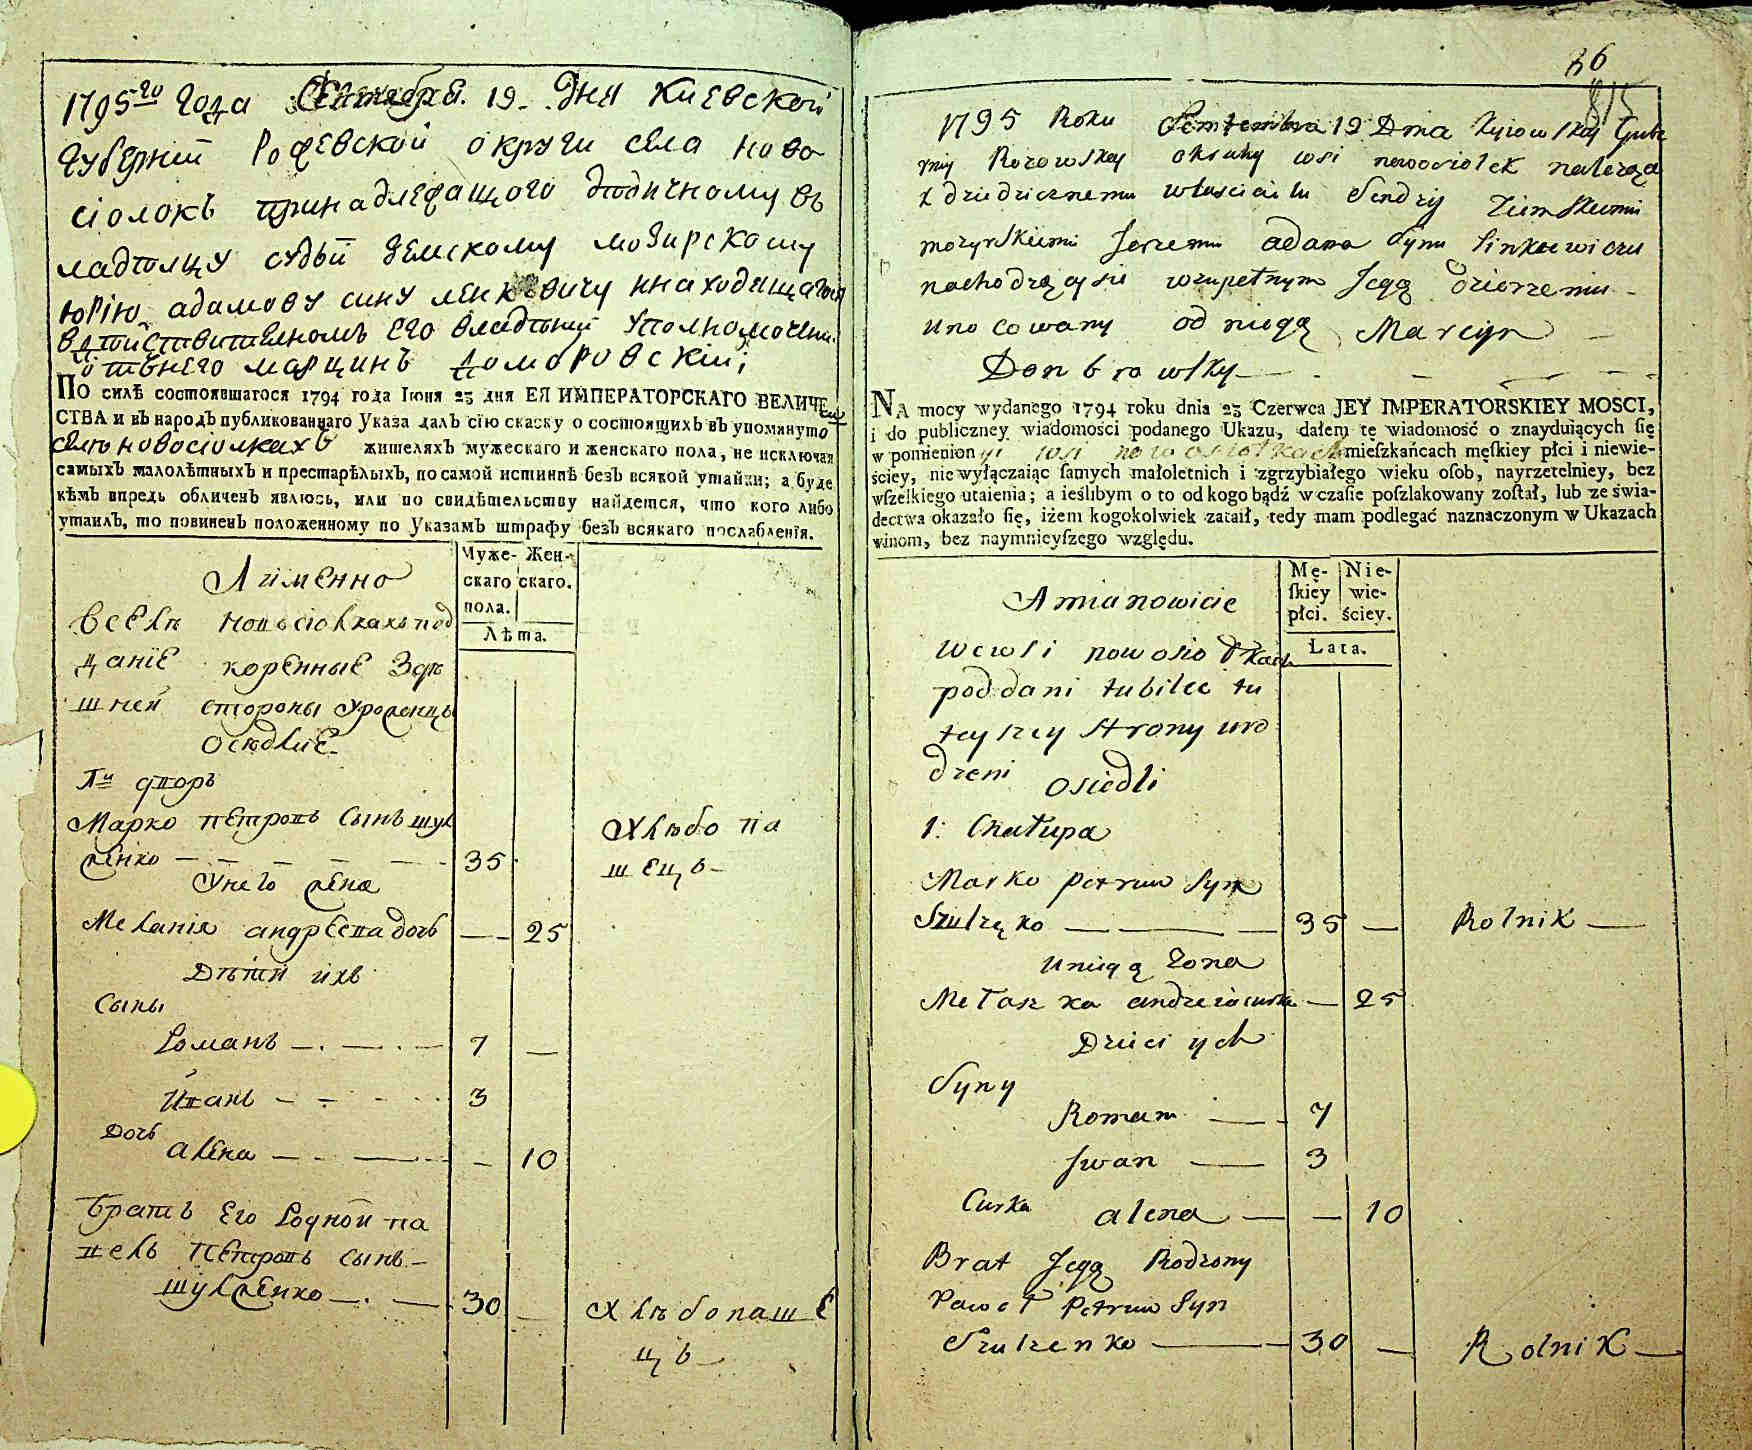 1795го года Сентября. 19. Дня Киевской
губернии Рожевской округи села ново
сіолокъ принадлежащого дѣдичному въ
ладѣлцу судьи земскому мозирскому
юрію адамову сину ленкевичу инаходящагося
вдѣйствителномъ его владѣнии уполномочени
отънего марцинъ домбровскии
ПО силѣ состоявшагося 1794 года Іюня 23 дня ЕЯ ИМПЕРАТОРСКАГО ВЕЛИЧЕ
СТВА и въ народъ публикованнаго Указа далъ сію скаску о состоящихъ въ упомянуто
селѣ новосіолкахъ жителяхъ мужескаго и женскаго пола, не исключая
самыхъ малолѣтныхъ и престарѣлыхъ, по самой истиннѣ безъ всякой утайки; а буде
кѣмъ впредь обличенъ явлюсь, или по свидѣтельству найдется, что кого либо
утаилъ, то повиненъ положенному по Указамъ штрафу безъ всякаго послабленія.
Муже- Жен-
скаго скаго.
пола.
Лѣта.
А именно
Вселѣ новосіолкахъ под
даніе коренные здѣ
шней стороны уроженцы
оседлие
1й дворъ
Марко петровъ сынъ шул
женко 35 Хлѣбопа
шецъ
Унего жена
Меланія андреева дочь 25
Дѣти ихъ
Сыны
Романъ 7
Иванъ 3
Дочь
алена 10
Братъ его родной па
велъ петровъ сынъ
шулженко 30 Хлѣбопаше
цъ
86
815
1795 Roku Septembra 19 Dnia Kyiowskey Gube
rnij Rozowskey okruhy wsi nowosiolek należąca
k dziedzicznemu włascicielu Sendzij Ziemskiemu
mozyrskiemu Jerzemu adama synu Linkiewiczu
nachodzącysie wzupełnym Jegą dzierzeniu
unocowany od niegą Marcyn
Dombrowsky
NA mocy wydanego 1794 roku dnia 23 Czerwca JEY IMPERATORSKIEY MOSCI,
i do publiczney wiadomości podanego Ukazu, dałem tę wiadomość o znayduiących ſię
w pomienioney wsi nowosiołkach mieſzkańcach męſkiey płci i niewie-
ściey, niewyłączaiąc ſamych małoletnich i zgrzybiałego wieku oſob, nayrzetelniey, bez
wſzelkiego utaienia; a ieślibym o to od kogo bądź w czaſie poſzlakowany zoſtał, lub ze świa-
dectwa okazało ſię, iżem kogokolwiek zataił, tedy mam podlegać naznaczonym w Ukazach
winom, bez naymnieyſzego względu.
Mę- Nie-
ſkiey wie-
płci. ściey.
Lata.
A mianowicie
Wewsi nowosiołkach
poddani tubilce tu
teyszey strony uro
dzeni osiedli
1. Chałupa
Marko petrow syn
Szulzęko 35 Rolnik
Uniegą żona
Mełaszka andrzeiacurka 25
Dzieci ych
Syny
Roman 7
Jwan 3
Curka alena 10
Brat Jegą Rodzony
Paweł petrow syn
Szulzenko 30 Rolnik